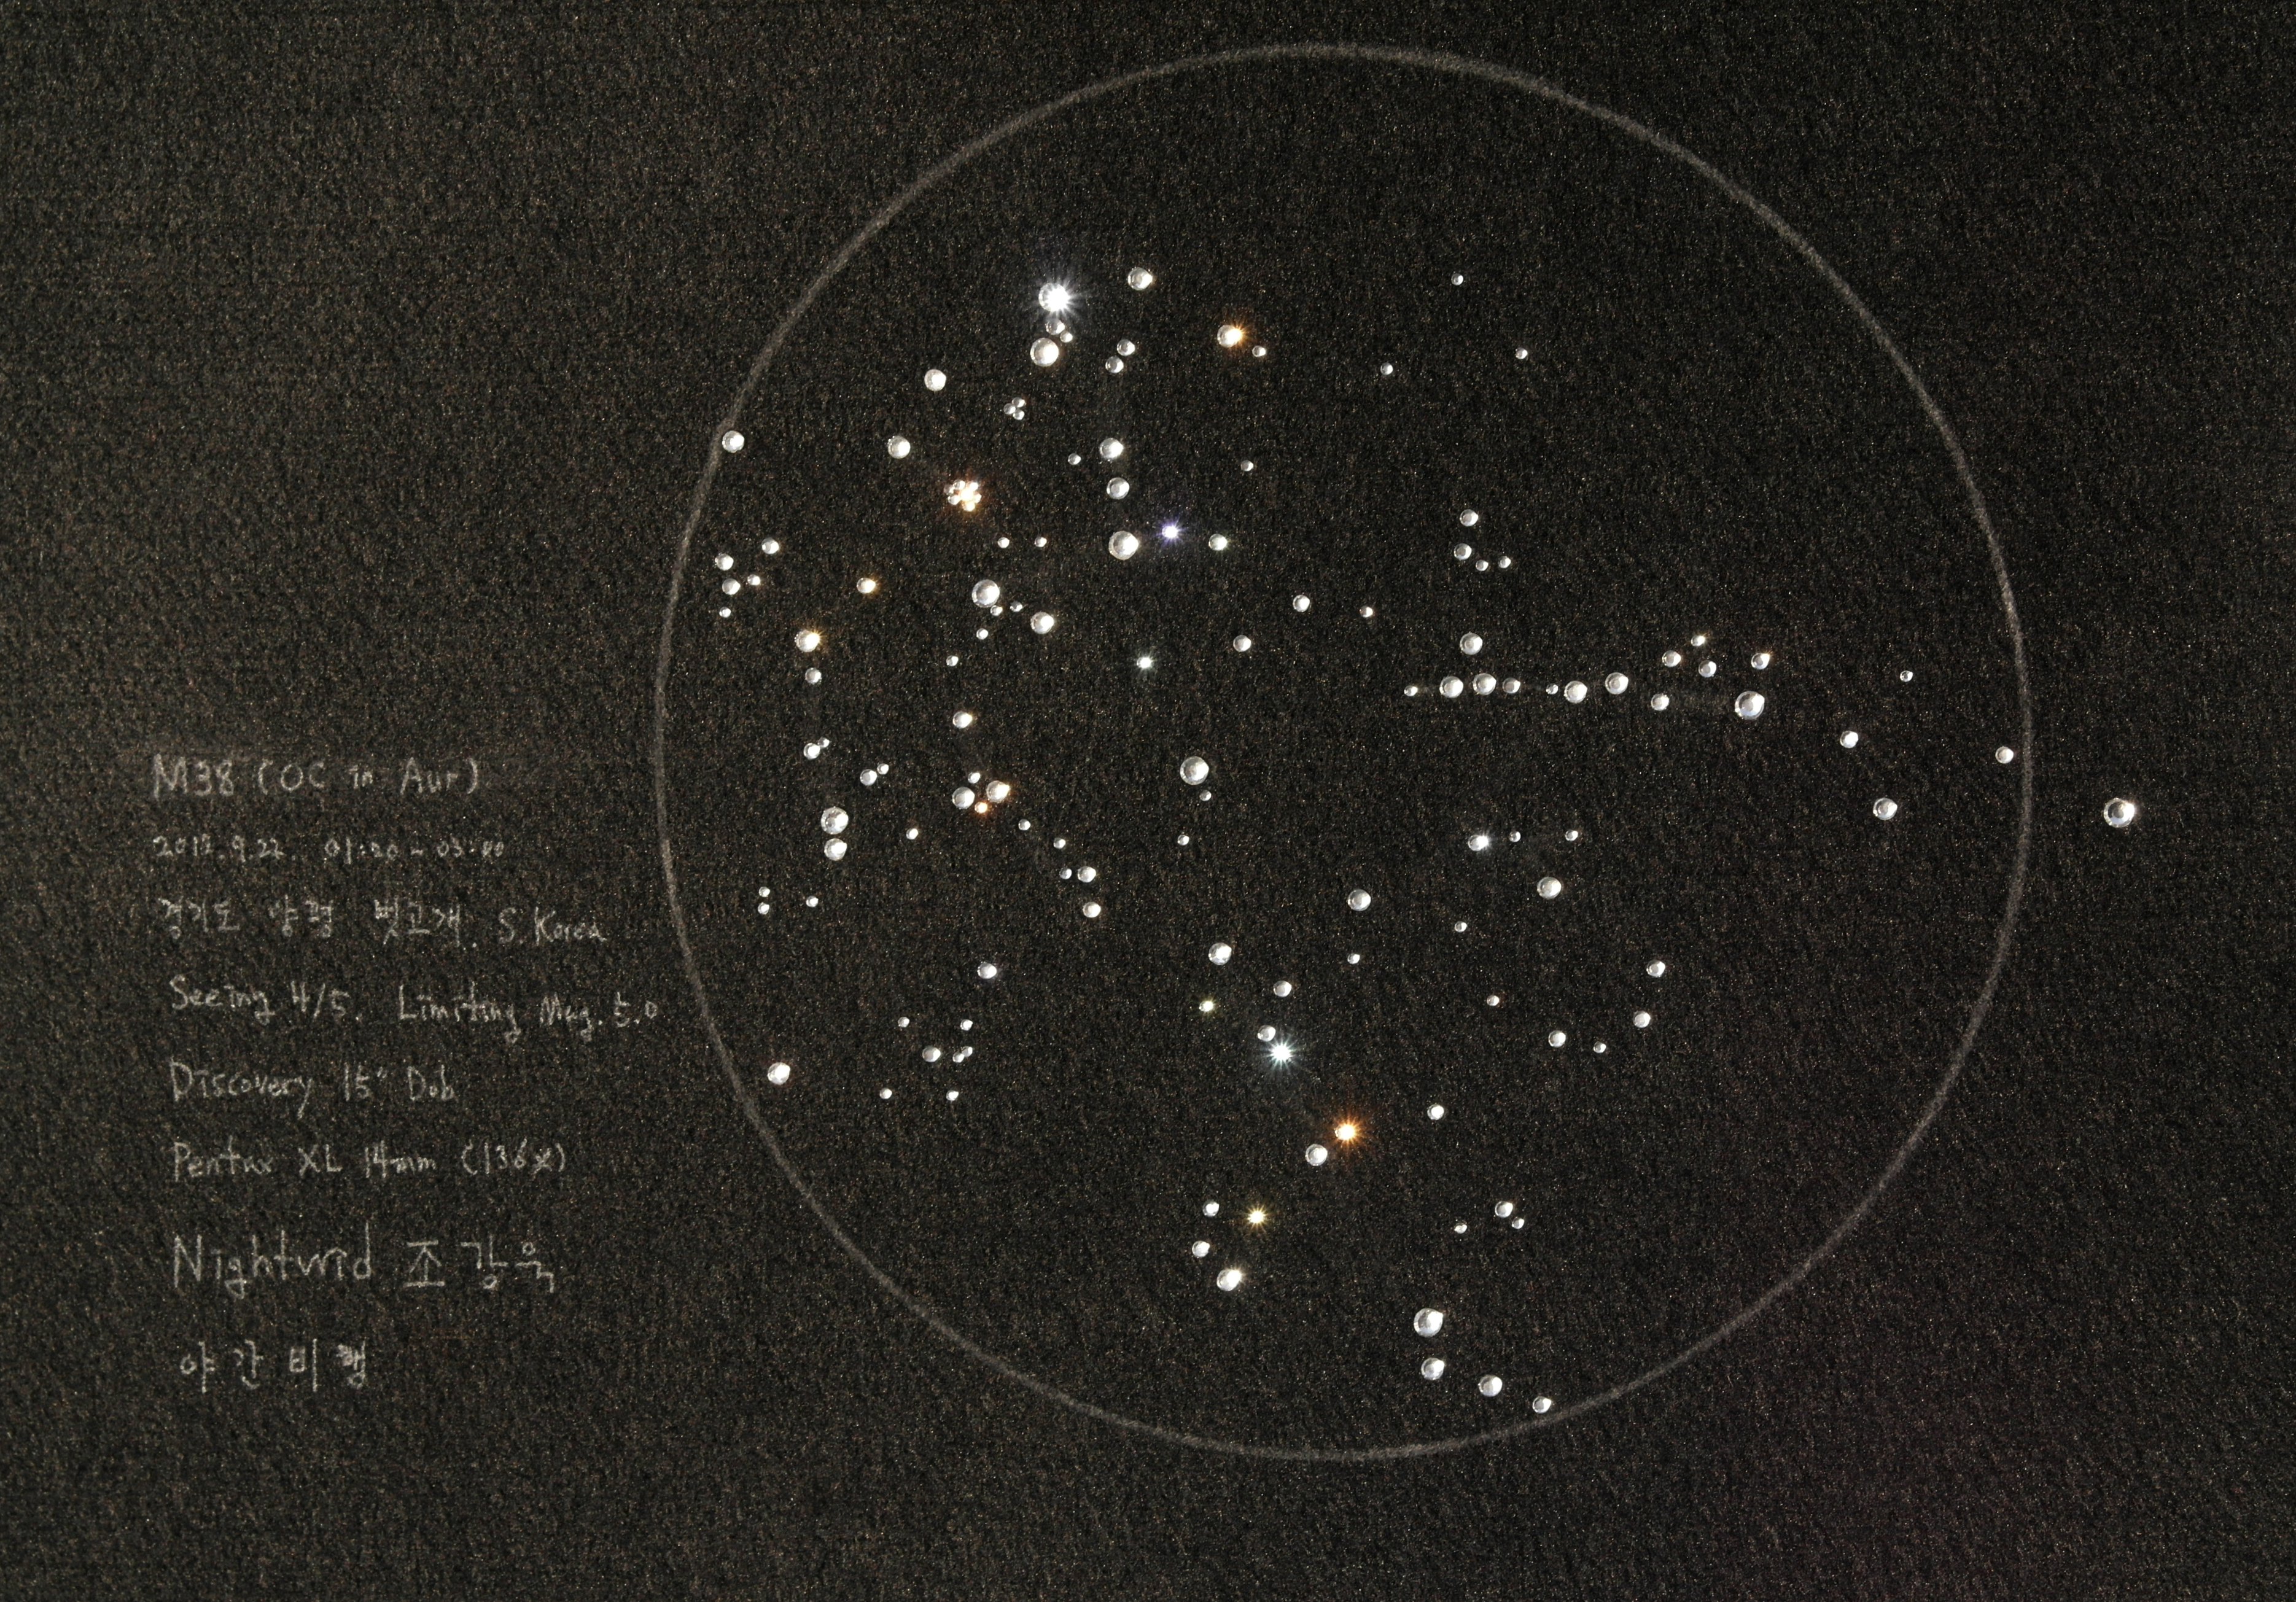 M38 (OC in Aur)
01:20 -
경기도 양평 벗고개. S. Korea
Seeing 4/5. Limiting Mag. 5.0
Discovery 15" Dob
Pentax XL 14mm (136x)
Nightwid 조강욱
야간비행